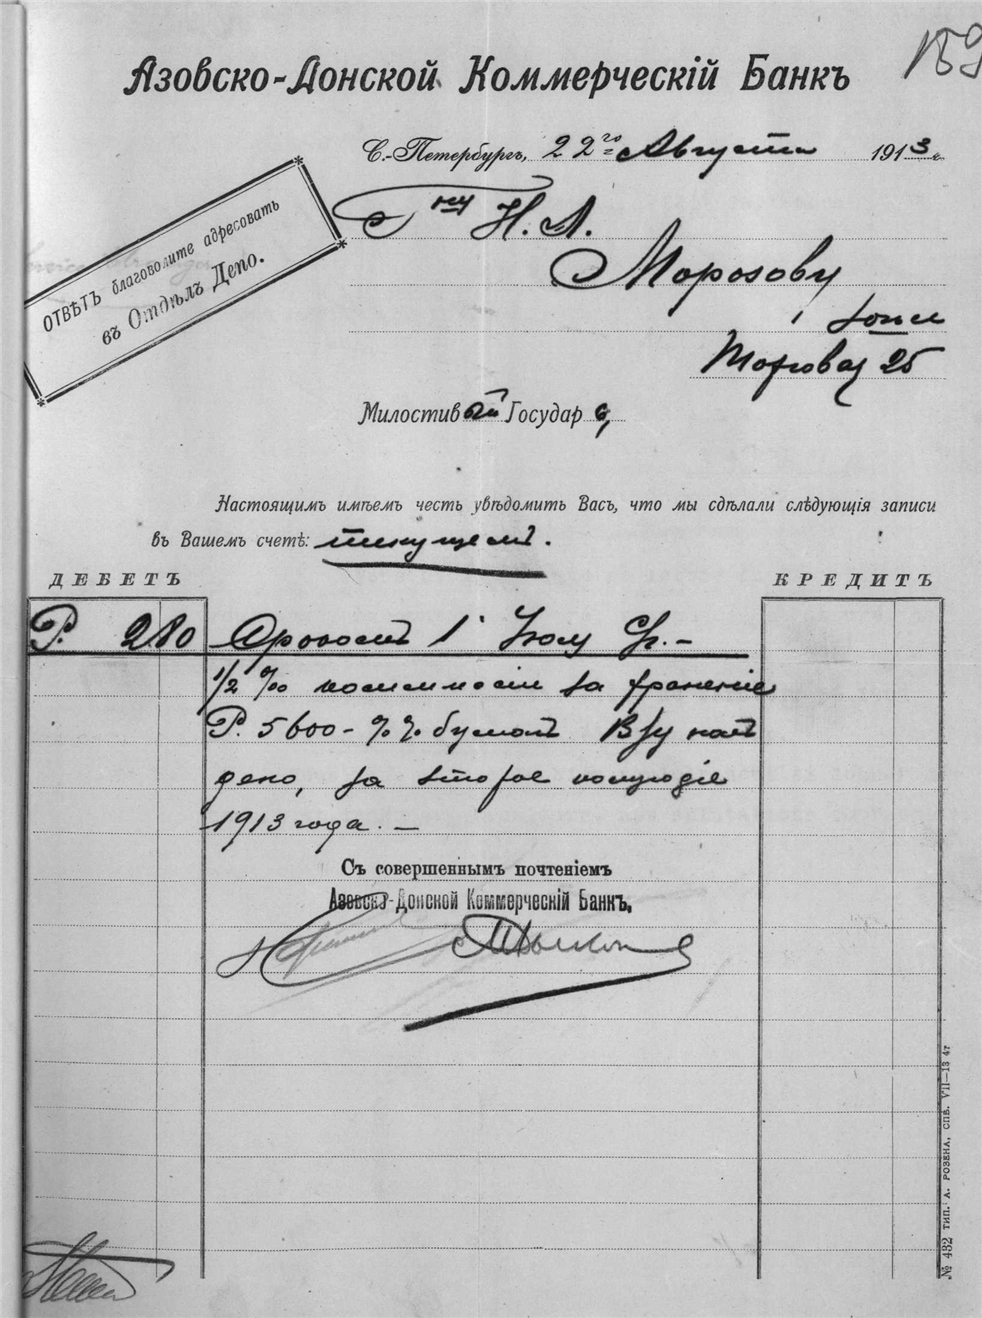 159
Азовско-Донской Коммерческій Банкъ
С.-Петербургъ, 22го Августа 1913 г.
Г-ну Н. А.
Морозову
Торговая 25
ОТВѢТЪ благоволите адресовать
въ Отдѣлъ Депо.
Милостивый Государь,
Настоящимъ имѣемъ честь увѣдомить Васъ, что мы сдѣлали слѣдующія записи
въ Вашемъ счетѣ: текущемъ.
ДЕБЕТЪ КРЕДИТЪ
Р. 2 80 1 Іюлу
1/2 ‰ за храненіе
Р. 5600 - %% бумагъ В/у
депо, за второе полугодіе
1913 года. —
Съ совершеннымъ почтеніемъ
Азовско-Донской Коммерческій Банкъ.
№ 432 тип. А. РОЗЕНА, СПБ. VII—13 4т